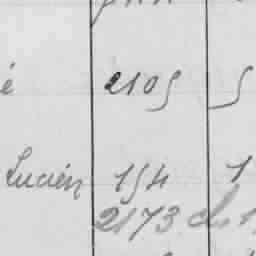 é 2105 5
Lucien 154 1
2173 cl. 1